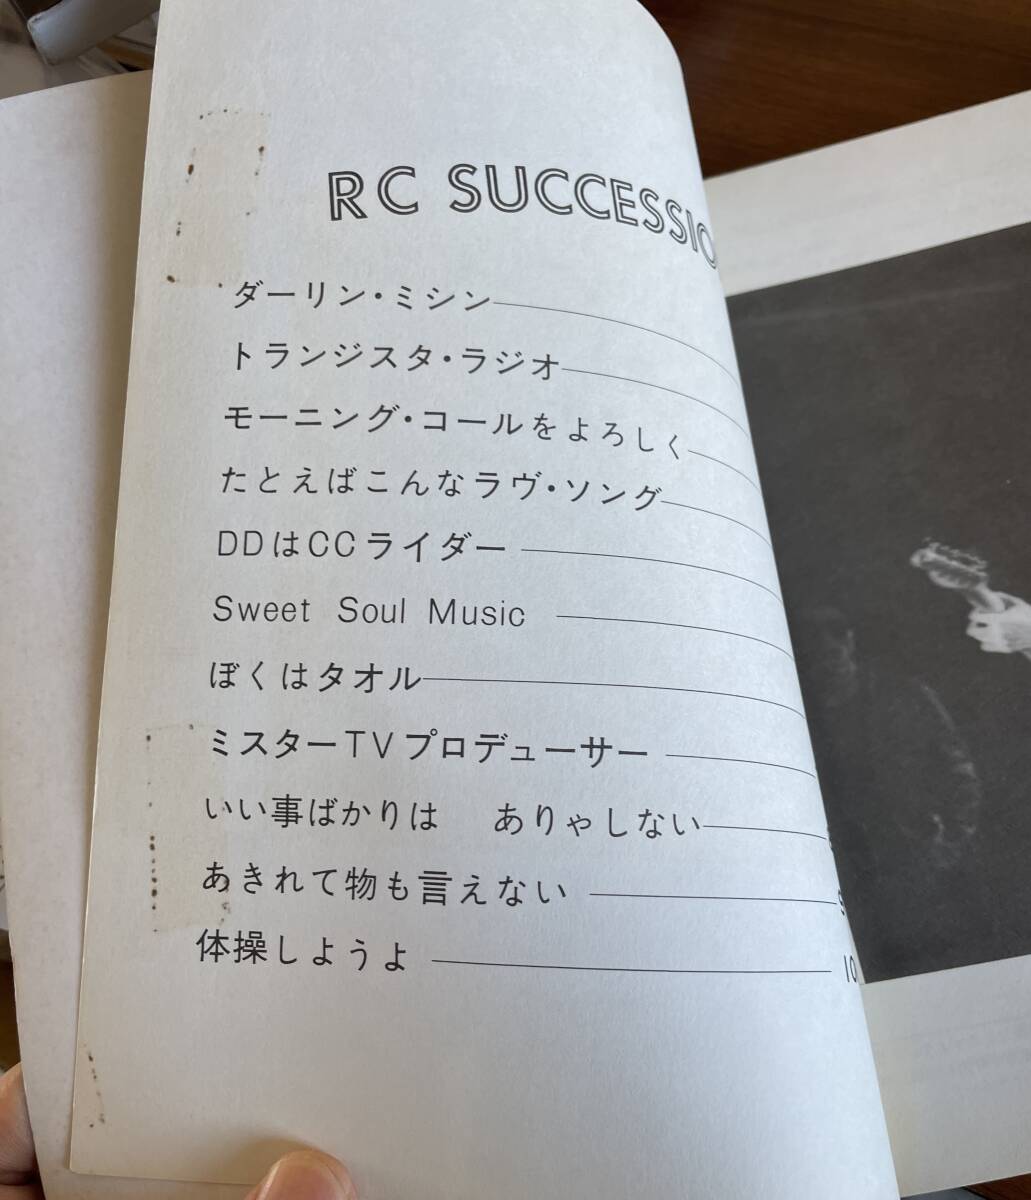 RC SUCCESSIO
ダーリン・ミシン
トランジスタ・ラジオ
モーニング・コールをよろしく
たとえばこんなラヴ・ソング
DDはCCライダー
Sweet Soul Music
ぼくはタオル
ミスターTVプロデューサー
いい事ばかりは ありゃしない
あきれて物も言えない
体操しようよ 10